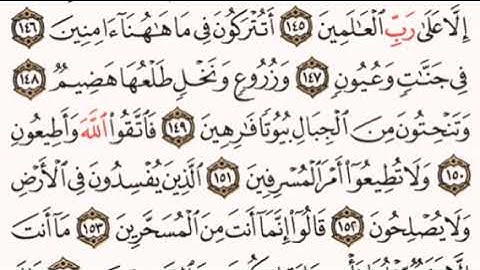 إِلَّا عَلَىٰ رَبِّ الْعَالَمِينَ ١٤٥ أَتُتْرَكُونَ فِي مَا هَاهُنَا آمِنِينَ ١٤٦
فِي جَنَّاتٍ وَعُيُونٍ ١٤٧ وَزُرُوعٍ وَنَخْلٍ طَلْعُهَا هَضِيمٌ ١٤٨
وَتَنْحِتُونَ مِنَ الْجِبَالِ بُيُوتًا فَارِهِينَ ١٤٩ فَاتَّقُوا اللَّهَ وَأَطِيعُونِ
١٥٠ وَلَا تُطِيعُوا أَمْرَ الْمُسْرِفِينَ ١٥١ الَّذِينَ يُفْسِدُونَ فِي الْأَرْضِ
وَلَا يُصْلِحُونَ ١٥٢ قَالُوا إِنَّمَا أَنتَ مِنَ الْمُسَحَّرِينَ ١٥٣ مَا أَنتَ